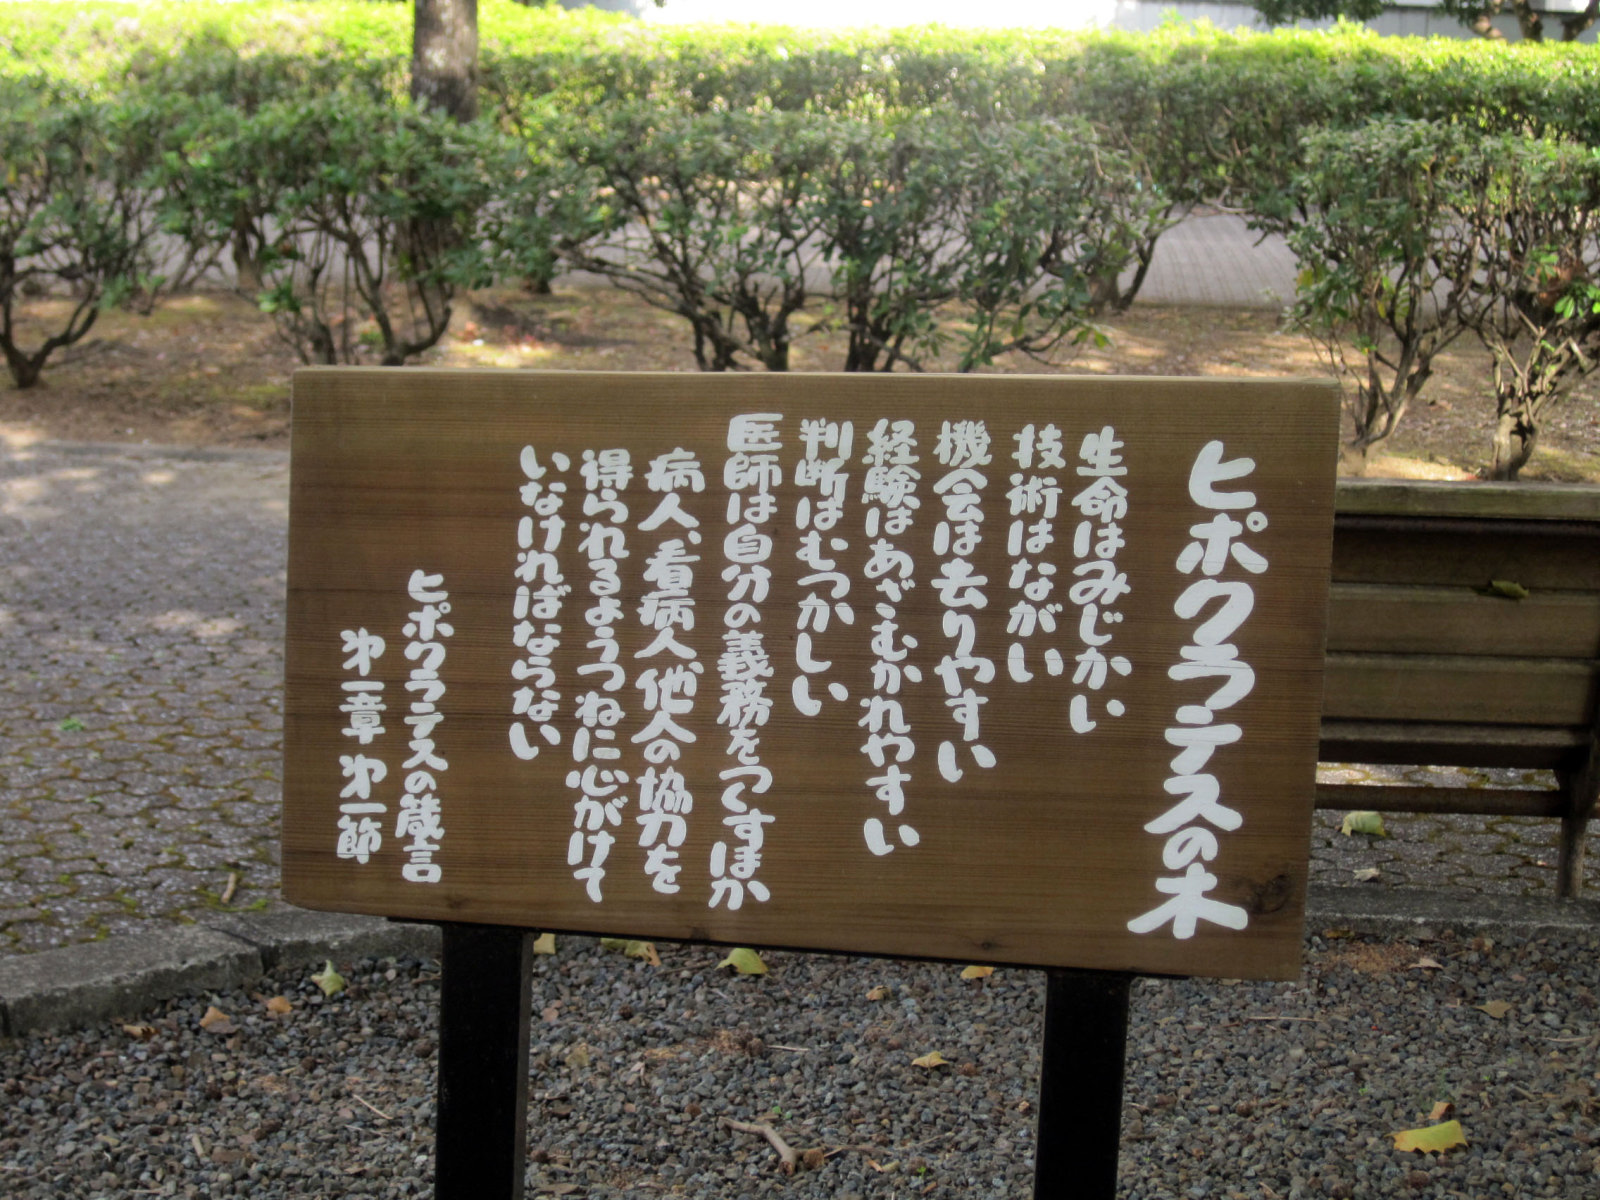 ヒポクラテスの木
生命はみじかい
技術はながい
機会は去りやすい
経験はあざむかれやすい
判断はむつかしい
医師は自分の義務をつくすほか
病人、看病人、他人の協力を
得られるようつねに心がけて
いなければならない
ヒポクラテスの箴言
第一章 第一節